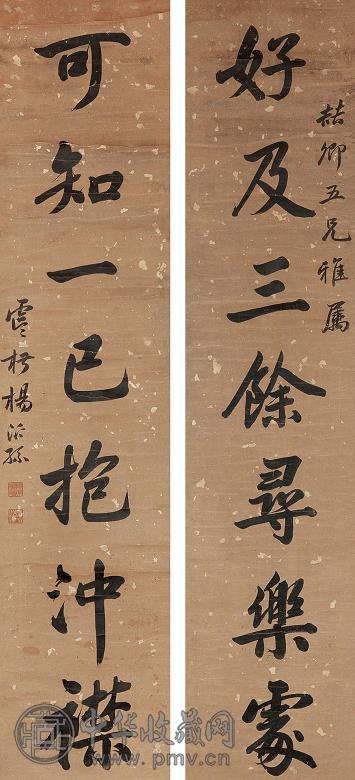 喆卿五兄雅屬
好及三餘尋樂處
可知一已抱沖襟
楊沂孫
中华收藏网
www.pmv.cn